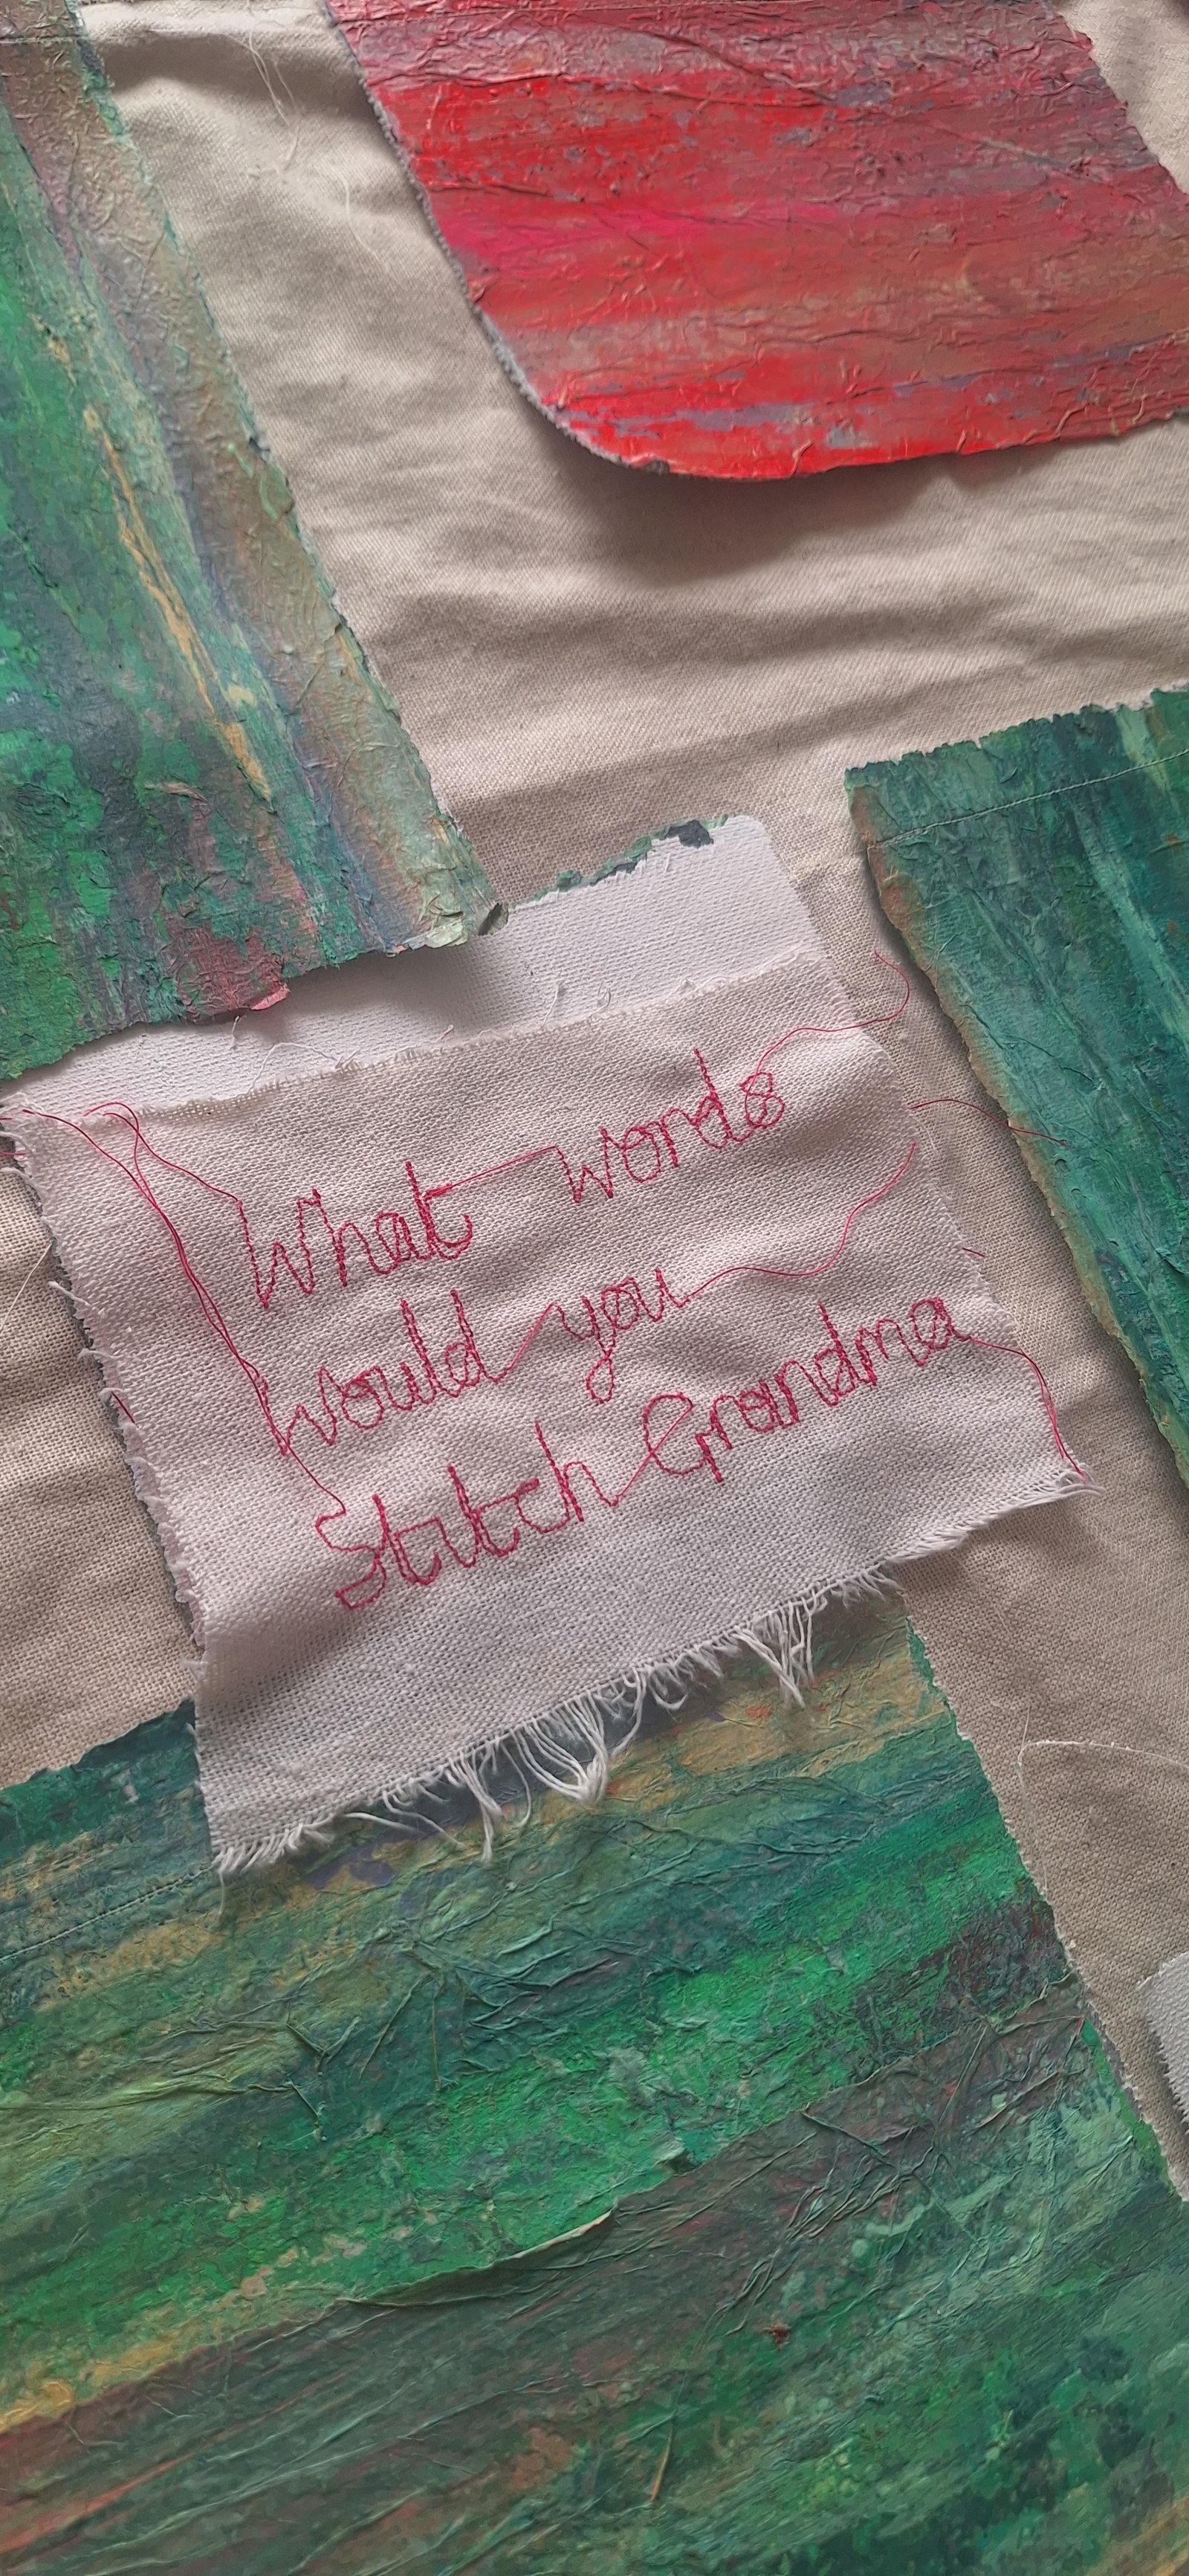 What words
would you
Stitch Grandma